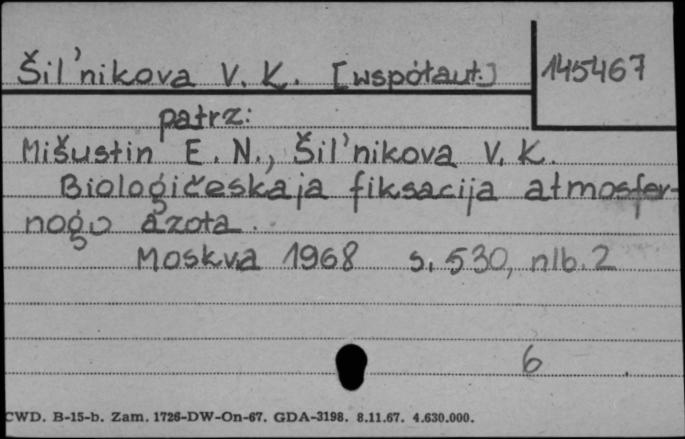 Šil'nikova V. K. [współaut.] 145467
patrz:
Mišustin E. N., Šil'nikova V. K.
Biologičeskaja fiksacija atmosfer-
nogo azota.
Moskva 1968 s. 530, nlb. 2
6
CWD. B-15-b. Zam. 1726-DW-On-67. GDA-3198. 8.11.67. 4.630.000.